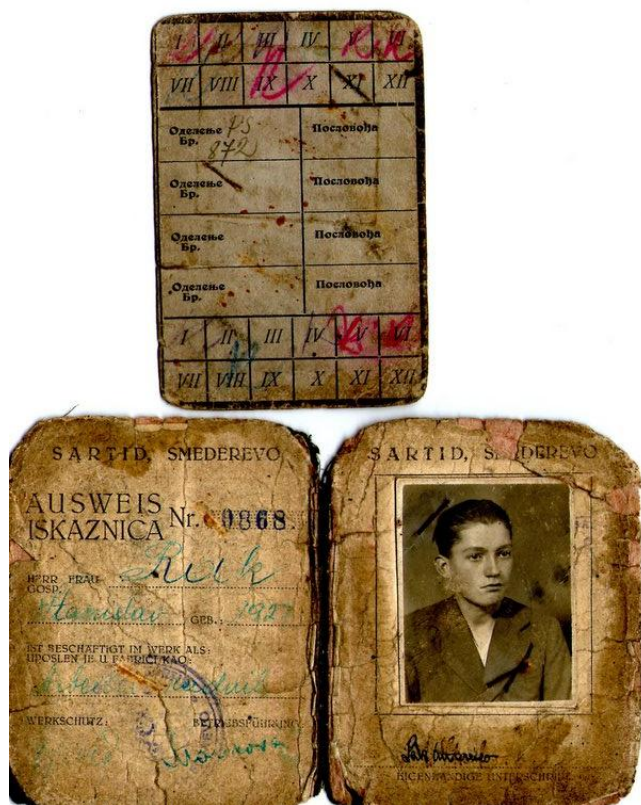 I II III IV V VI
VII VIII IX X XI XII
Оделење PS Пословођа
Бр. 872
Оделење Пословођа
Бр.
Оделење Пословођа
Бр.
Оделење Пословођа
Бр.
I II III IV V VI
VII VIII IX X XI XII
SARTID, SMEDEREVO
AUSWEIS
ISKAZNICA Nr. 0868
HERR FRAU
GOSP.
Stanislav GEB.: 192
IST BESCHÄFTIGT IM WERK ALS:
UPOSLEN JE U FABRICI KAO:
Radnik
WERKSCHUTZ: BETRIEBSFÜHRUNG:
SARTID, SMEDEREVO
EIGENHÄNDIGE UNTERSCHRIFT